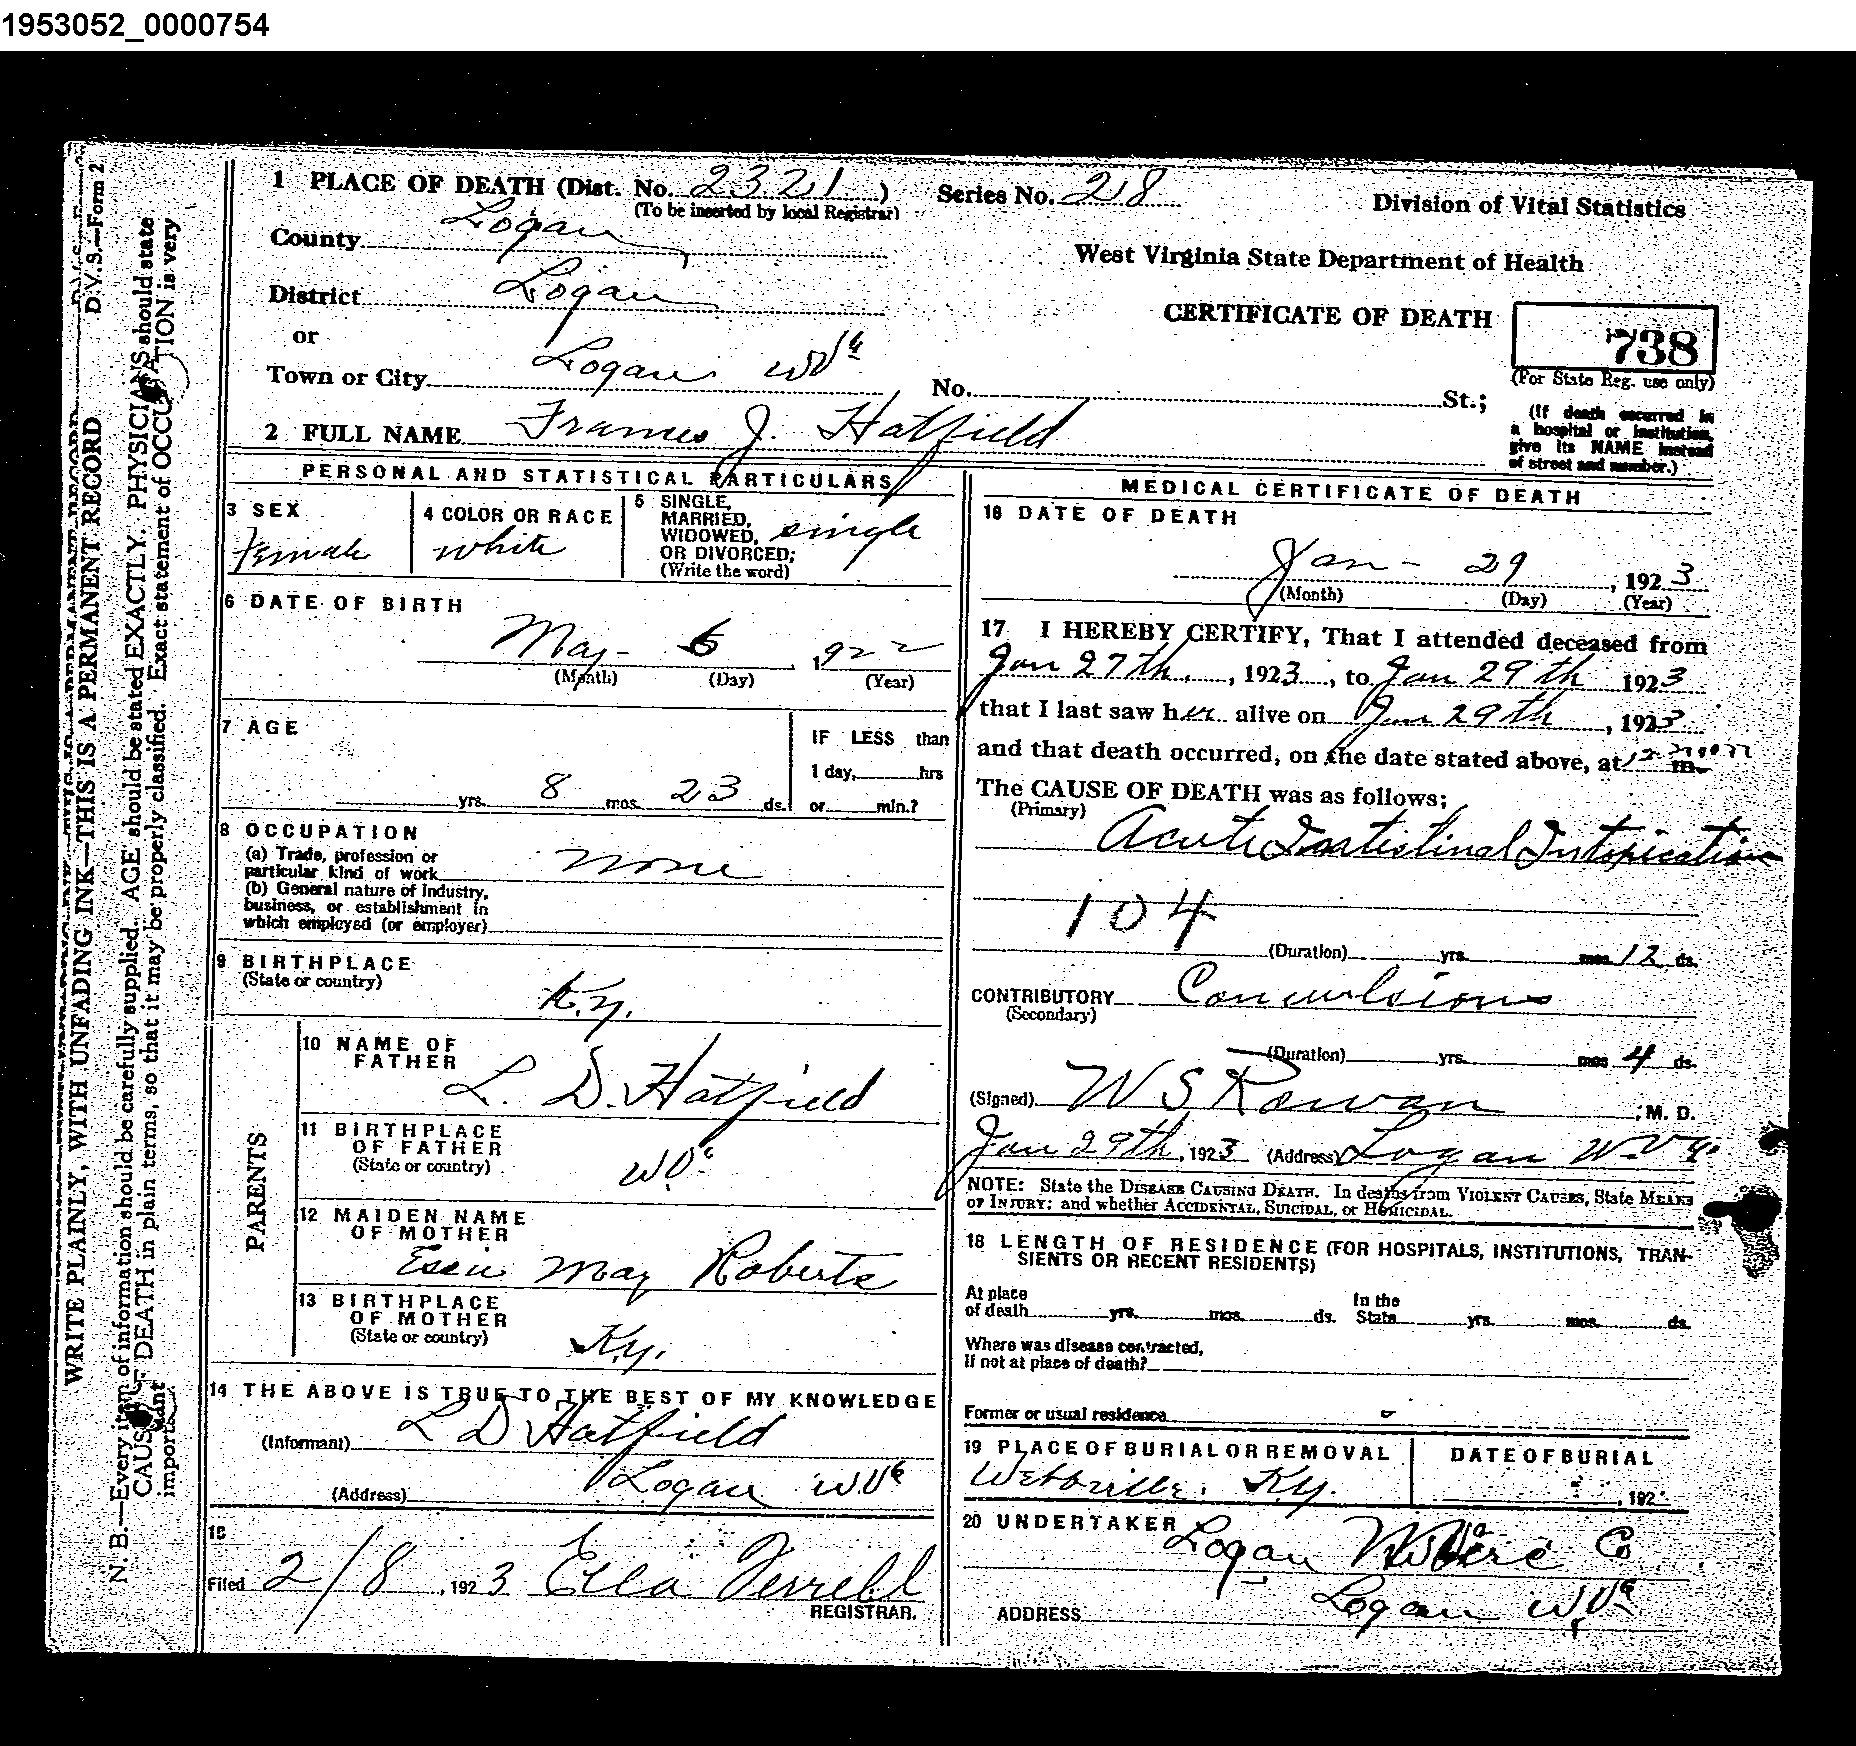 1953052_0000754
D.V.S.—Form 2
WRITE PLAINLY, WITH UNFADING INK—THIS IS A PERMANENT RECORD
N. B.—Every item of information should be carefully supplied. AGE should be stated EXACTLY. PHYSICIANS should state
CAUSE OF DEATH in plain terms, so that it may be properly classified. Exact statement of OCCUPATION is very
important
1 PLACE OF DEATH (Dist. No. 2321 ) Series No. 28
(To be inserted by local Registrar)
County Logan
District Logan
or
Town or City Logan WVa
Division of Vital Statistics
West Virginia State Department of Health
CERTIFICATE OF DEATH
738
(For State Reg. use only)
No. St.;
(If death occurred in
a hospital or institution,
give its NAME instead
of street and number.)
2 FULL NAME Frances J. Hatfield
PERSONAL AND STATISTICAL PARTICULARS
3 SEX
Female
4 COLOR OR RACE
white
5 SINGLE,
MARRIED,
WIDOWED,
OR DIVORCED;
(Write the word)
single
6 DATE OF BIRTH
May - 6, 1922
(Month) (Day) (Year)
7 AGE
yrs. 8 mos. 23 ds.
IF LESS than
1 day, hrs
or min.?
8 OCCUPATION
(a) Trade, profession or
particular kind of work none
(b) General nature of industry,
business, or establishment in
which employed (or employer)
9 BIRTHPLACE
(State or country)
Ky.
PARENTS
10 NAME OF
FATHER
L. D. Hatfield
11 BIRTHPLACE
OF FATHER
(State or country)
WVa
12 MAIDEN NAME
OF MOTHER
Essie May Roberts
13 BIRTHPLACE
OF MOTHER
(State or country)
Ky.
14 THE ABOVE IS TRUE TO THE BEST OF MY KNOWLEDGE
(Informant) L D Hatfield
(Address) Logan WVa
15
Filed 2/8, 1923 Ella Ferrell
REGISTRAR.
MEDICAL CERTIFICATE OF DEATH
16 DATE OF DEATH
Jan - 29, 1923
(Month) (Day) (Year)
17 I HEREBY CERTIFY, That I attended deceased from
Jan 27th, 1923, to Jan 29th 1923
that I last saw her alive on Jan 29th, 1923
and that death occurred, on the date stated above, at 12 noon m.
The CAUSE OF DEATH was as follows;
(Primary)
Acute Intestinal Intoxication
104
(Duration) yrs. mos 12 ds.
CONTRIBUTORY Convulsions
(Secondary)
(Duration) yrs. mos 4 ds.
(Signed) W S Rowan M. D.
Jan 29th, 1923 (Address) Logan W.Va.
NOTE: State the DISEASE CAUSING DEATH. In deaths from VIOLENT CAUSES, State MEANS
OF INJURY; and whether ACCIDENTAL, SUICIDAL, or HOMICIDAL.
18 LENGTH OF RESIDENCE (FOR HOSPITALS, INSTITUTIONS, TRAN-
SIENTS OR RECENT RESIDENTS)
At place
of death yrs. mos. ds.
In the
State yrs. mos. ds.
Where was disease contracted,
if not at place of death?
Former or usual residence
19 PLACE OF BURIAL OR REMOVAL
Webbville, Ky.
DATE OF BURIAL
, 192
20 UNDERTAKER Logan Co
ADDRESS Logan WVa